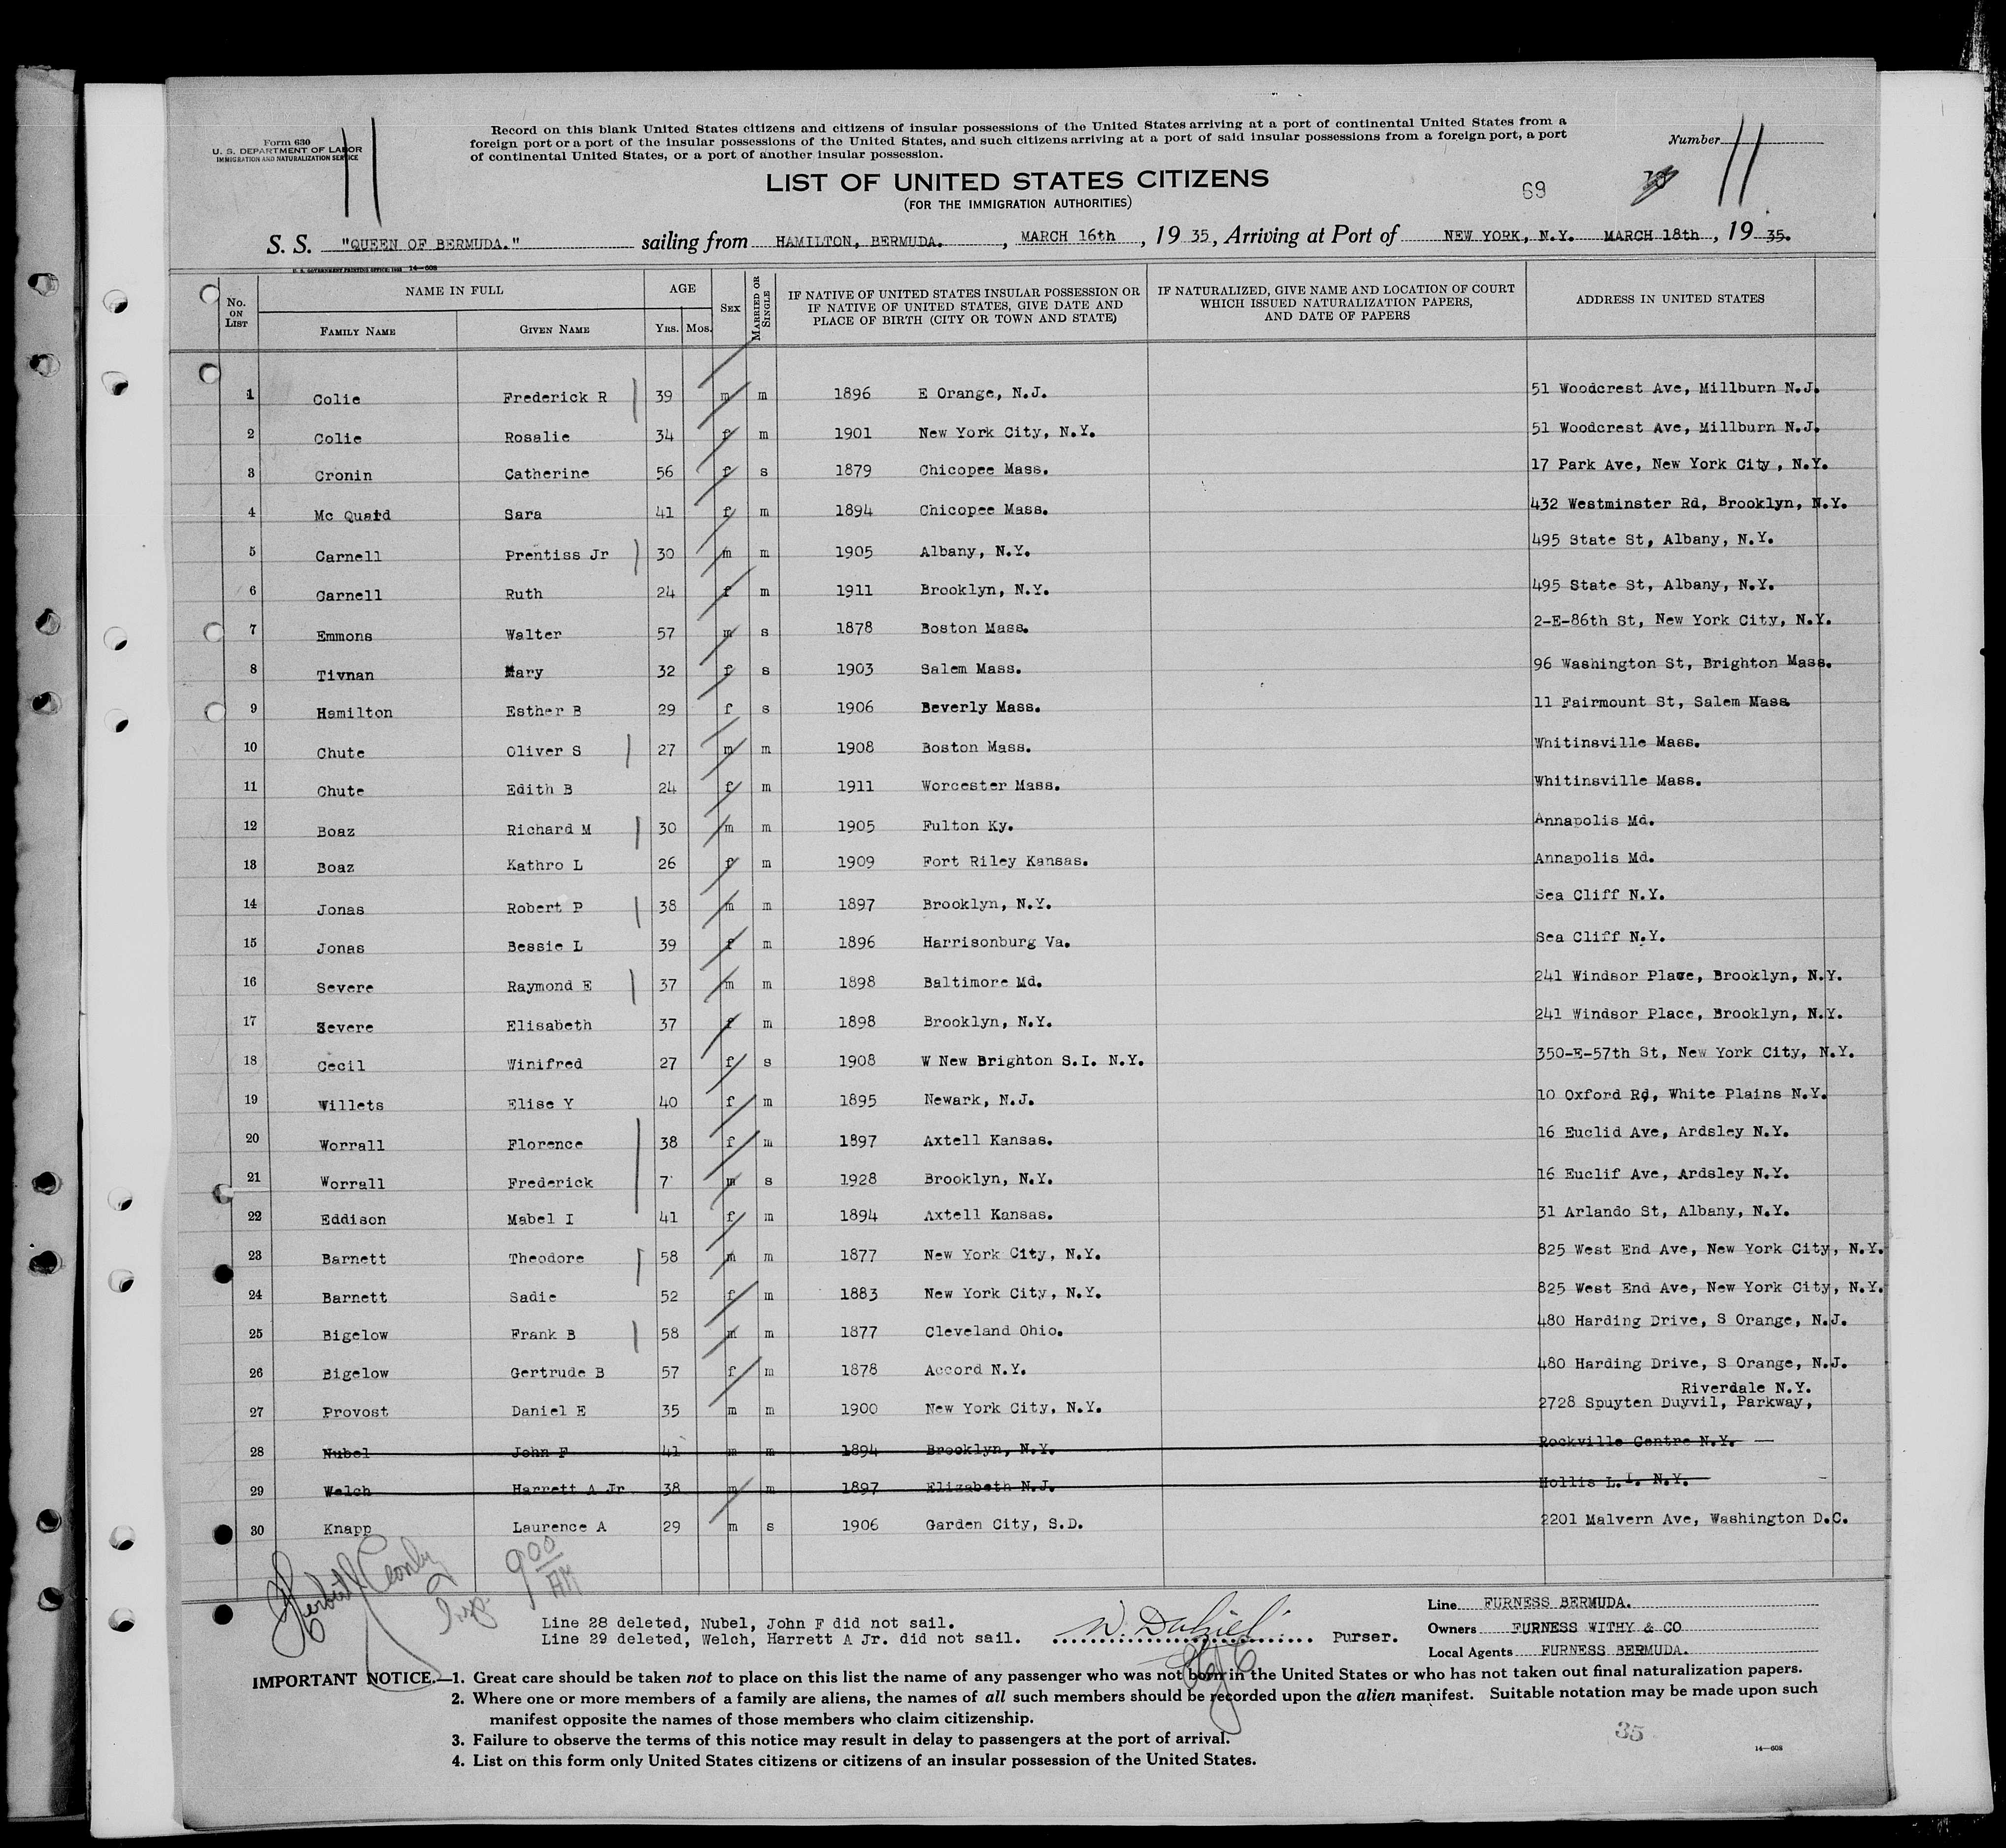 Form 630
U. S. DEPARTMENT OF LABOR
IMMIGRATION AND NATURALIZATION SERVICE
11
Record on this blank United States citizens and citizens of insular possessions of the United States arriving at a port of continental United States from a
foreign port or a port of the insular possessions of the United States, and such citizens arriving at a port of said insular possessions from a foreign port, a port
of continental United States, or a port of another insular possession.
Number 11
LIST OF UNITED STATES CITIZENS
(FOR THE IMMIGRATION AUTHORITIES)
69
S. S. "QUEEN OF BERMUDA." sailing from HAMILTON, BERMUDA. , MARCH 16th , 19 35, Arriving at Port of NEW YORK, N.Y. MARCH 18th , 19 35.
U. S. GOVERNMENT PRINTING OFFICE: 1933 14—608
No. ON LIST
NAME IN FULL
FAMILY NAME
GIVEN NAME
AGE
YRS. MOS.
SEX
MARRIED OR SINGLE
IF NATIVE OF UNITED STATES INSULAR POSSESSION OR
IF NATIVE OF UNITED STATES, GIVE DATE AND
PLACE OF BIRTH (CITY OR TOWN AND STATE)
IF NATURALIZED, GIVE NAME AND LOCATION OF COURT
WHICH ISSUED NATURALIZATION PAPERS,
AND DATE OF PAPERS
ADDRESS IN UNITED STATES
1 Colie Frederick R 39 m m 1896 E Orange, N.J. 51 Woodcrest Ave, Millburn N.J.
2 Colie Rosalie 34 f m 1901 New York City, N.Y. 51 Woodcrest Ave, Millburn N.J.
3 Cronin Catherine 56 f s 1879 Chicopee Mass. 17 Park Ave, New York City, N.Y.
4 Mc Quaid Sara 41 f m 1894 Chicopee Mass. 432 Westminster Rd, Brooklyn, N.Y.
5 Carnell Prentiss Jr 30 m m 1905 Albany, N.Y. 495 State St, Albany, N.Y.
6 Carnell Ruth 24 f m 1911 Brooklyn, N.Y. 495 State St, Albany, N.Y.
7 Emmons Walter 57 m s 1878 Boston Mass. 2-E-86th St, New York City, N.Y.
8 Tivnan Mary 32 f s 1903 Salem Mass. 96 Washington St, Brighton Mass.
9 Hamilton Esther B 29 f s 1906 Beverly Mass. 11 Fairmount St, Salem Mass
10 Chute Oliver S 27 m m 1908 Boston Mass. Whitinsville Mass.
11 Chute Edith B 24 f m 1911 Worcester Mass. Whitinsville Mass.
12 Boaz Richard M 30 m m 1905 Fulton Ky. Annapolis Md.
13 Boaz Kathro L 26 f m 1909 Fort Riley Kansas. Annapolis Md.
14 Jonas Robert P 38 m m 1897 Brooklyn, N.Y. Sea Cliff N.Y.
15 Jonas Bessie L 39 f m 1896 Harrisonburg Va. Sea Cliff N.Y.
16 Severe Raymond E 37 m m 1898 Baltimore Md. 241 Windsor Place, Brooklyn, N.Y.
17 Severe Elisabeth 37 f m 1898 Brooklyn, N.Y. 241 Windsor Place, Brooklyn, N.Y.
18 Cecil Winifred 27 f s 1908 W New Brighton S.I. N.Y. 350-E-57th St, New York City, N.Y.
19 Willets Elise Y 40 f m 1895 Newark, N.J. 10 Oxford Rd, White Plains N.Y.
20 Worrall Florence 38 f m 1897 Axtell Kansas. 16 Euclid Ave, Ardsley N.Y.
21 Worrall Frederick 7 m s 1928 Brooklyn, N.Y. 16 Euclif Ave, Ardsley N.Y.
22 Eddison Mabel I 41 f m 1894 Axtell Kansas. 31 Arlando St, Albany, N.Y.
23 Barnett Theodore 58 m m 1877 New York City, N.Y. 825 West End Ave, New York City, N.Y.
24 Barnett Sadie 52 f m 1883 New York City, N.Y. 825 West End Ave, New York City, N.Y.
25 Bigelow Frank B 58 m m 1877 Cleveland Ohio. 480 Harding Drive, S Orange, N.J.
26 Bigelow Gertrude B 57 f m 1878 Accord N.Y. 480 Harding Drive, S Orange, N.J.
Riverdale N.Y.
27 Provost Daniel E 35 m m 1900 New York City, N.Y. 2728 Spuyten Duyvil, Parkway,
28 Nubel John F 41 m m 1894 Brooklyn, N.Y. Rockville Centre N.Y.
29 Welch Harrett A Jr 38 m m 1897 Elizabeth N.J. Hollis L.I. N.Y.
30 Knapp Laurence A 29 m s 1906 Garden City, S.D. 2201 Malvern Ave, Washington D.C.
Insp.
9 00 AM
Line 28 deleted, Nubel, John F did not sail.
Line 29 deleted, Welch, Harrett A Jr. did not sail.
W. Dalziel Purser.
Line FURNESS BERMUDA.
Owners FURNESS WITHY & CO
Local Agents FURNESS BERMUDA.
IMPORTANT NOTICE.—1. Great care should be taken not to place on this list the name of any passenger who was not born in the United States or who has not taken out final naturalization papers.
2. Where one or more members of a family are aliens, the names of all such members should be recorded upon the alien manifest. Suitable notation may be made upon such
manifest opposite the names of those members who claim citizenship.
3. Failure to observe the terms of this notice may result in delay to passengers at the port of arrival.
4. List on this form only United States citizens or citizens of an insular possession of the United States.
35
14—608